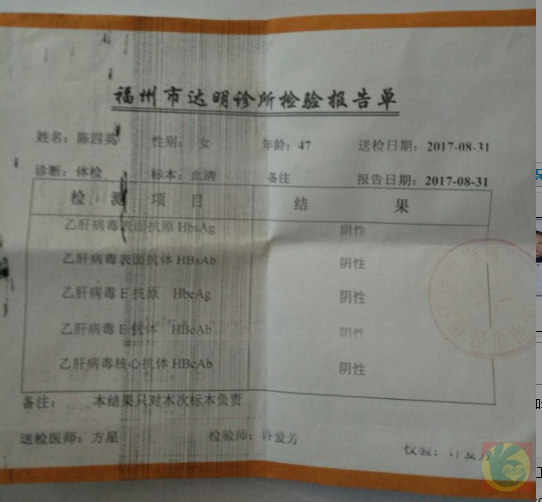 福州市达明诊所检验报告单
姓名：陈四英 性别：女 年龄：47 送检日期：2017-08-31
诊断：体检 标本：血清 备注 报告日期：2017-08-31
检测项目 结果
乙肝病毒表面抗原 HbsAg 阴性
乙肝病毒表面抗体 HBsAb 阴性
乙肝病毒 E 抗原 HbeAg 阴性
乙肝病毒 E 抗体 HBeAb 阴性
乙肝病毒核心抗体 HBcAb 阴性
备注： 本结果只对本次标本负责
送检医师：方星 检验师：许爱芳 校验：许爱芳